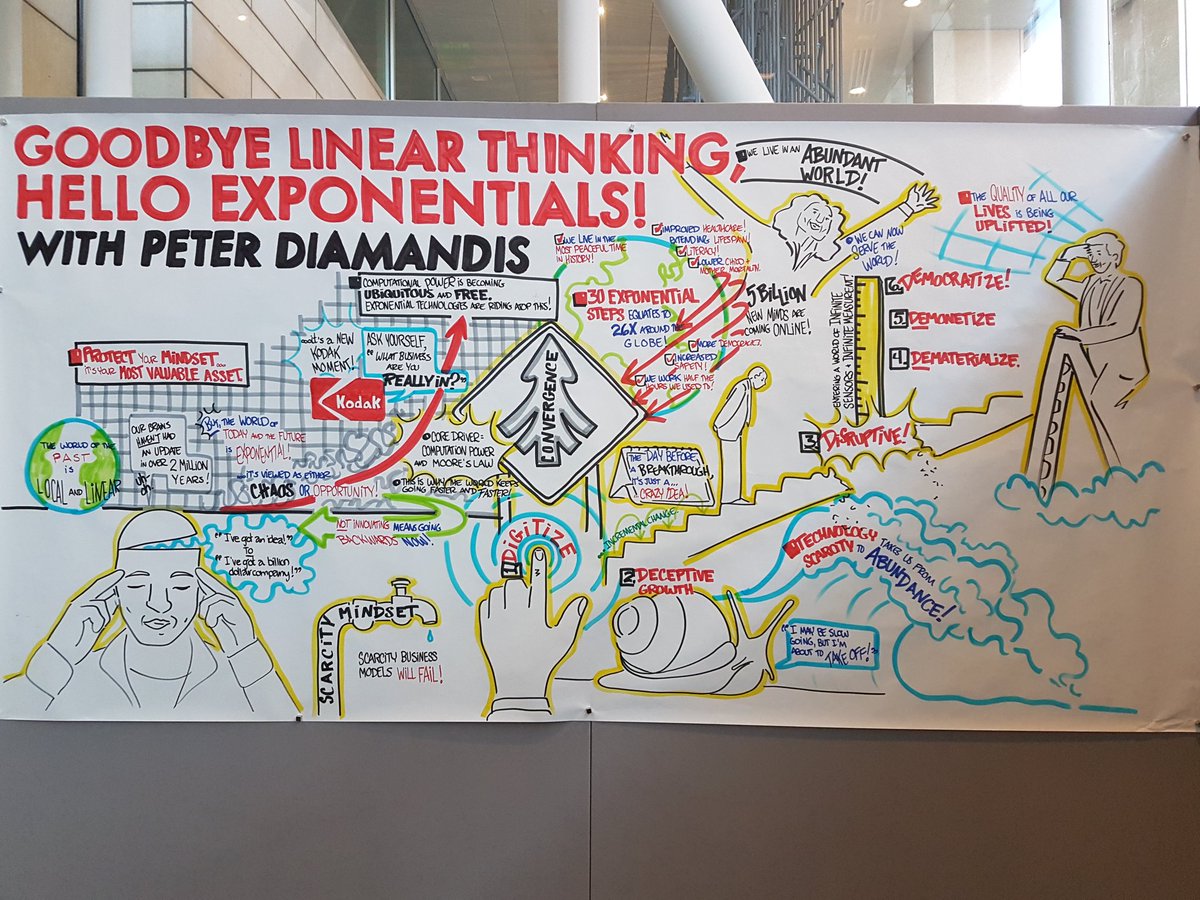 GOODBYE LINEAR THINKING,
HELLO EXPONENTIALS!
WITH PETER DIAMANDIS
WE LIVE IN AN
ABUNDANT
WORLD!
THE QUALITY OF ALL OUR
LIVES IS BEING
UPLIFTED!
WE CAN NOW
SERVE THE
WORLD!
WE LIVE IN THE
MOST PEACEFUL TIME
IN HISTORY!
IMPROVED HEALTHCARE!
EXTENDING LIFESPAN
LITERACY!
LOWER CHILD +
MOTHER
COMPUTATIONAL POWER IS BECOMING
UBIQUITOUS AND FREE.
EXPONENTIAL TECHNOLOGIES ARE RIDING ATOP THIS!
30 EXPONENTIAL
STEPS EQUATES TO
26X AROUND THE
GLOBE!
5 BILLION
NEW MINDS ARE
COMING ONLINE!
MORE DEMOCRACY.
INCREASED
SAFETY!
WE WORK HALF THE
HOURS WE USED TO!
ENTERING A WORLD OF INFINITE
SENSORS + INFINITE MEASUREMENT!
6. DEMOCRATIZE!
5. DEMONETIZE
4. DEMATERIALIZE.
3. DISRUPTIVE!
PROTECT YOUR MINDSET
IT'S YOUR MOST VALUABLE ASSET.
A NEW
KODAK
MOMENT!
ASK YOURSELF,
"WHAT BUSINESS
ARE YOU
REALLY IN?"
Kodak
CONVERGENCE
THE WORLD OF THE
PAST
IS
LOCAL AND LINEAR
OUR BRAINS
HAVEN'T HAD
AN UPDATE
IN OVER 2 MILLION
YEARS!
BUT, THE WORLD OF
TODAY AND THE FUTURE
IS EXPONENTIAL!
...IT'S VIEWED AS EITHER
CHAOS OR OPPORTUNITY!
CORE DRIVER =
COMPUTATION POWER
AND MOORE'S LAW
THIS IS WHY THE WORLD KEEPS
GOING FASTER AND FASTER!
THE DAY BEFORE
A BREAKTHROUGH,
IT'S JUST A...
CRAZY IDEA!
NOT INNOVATING MEANS GOING
BACKWARDS NOW!
INCREMENTAL CHANGE.
"I've got an idea!"
to
"I've got a billion
dollar company!"
1. DIGITIZE
2. DECEPTIVE
GROWTH
TECHNOLOGY TAKES US FROM
SCARCITY TO ABUNDANCE!
SCARCITY MINDSET
SCARCITY BUSINESS
MODELS WILL FAIL!
"I MAY BE SLOW
GOING, BUT I'M
ABOUT TO TAKE OFF!"